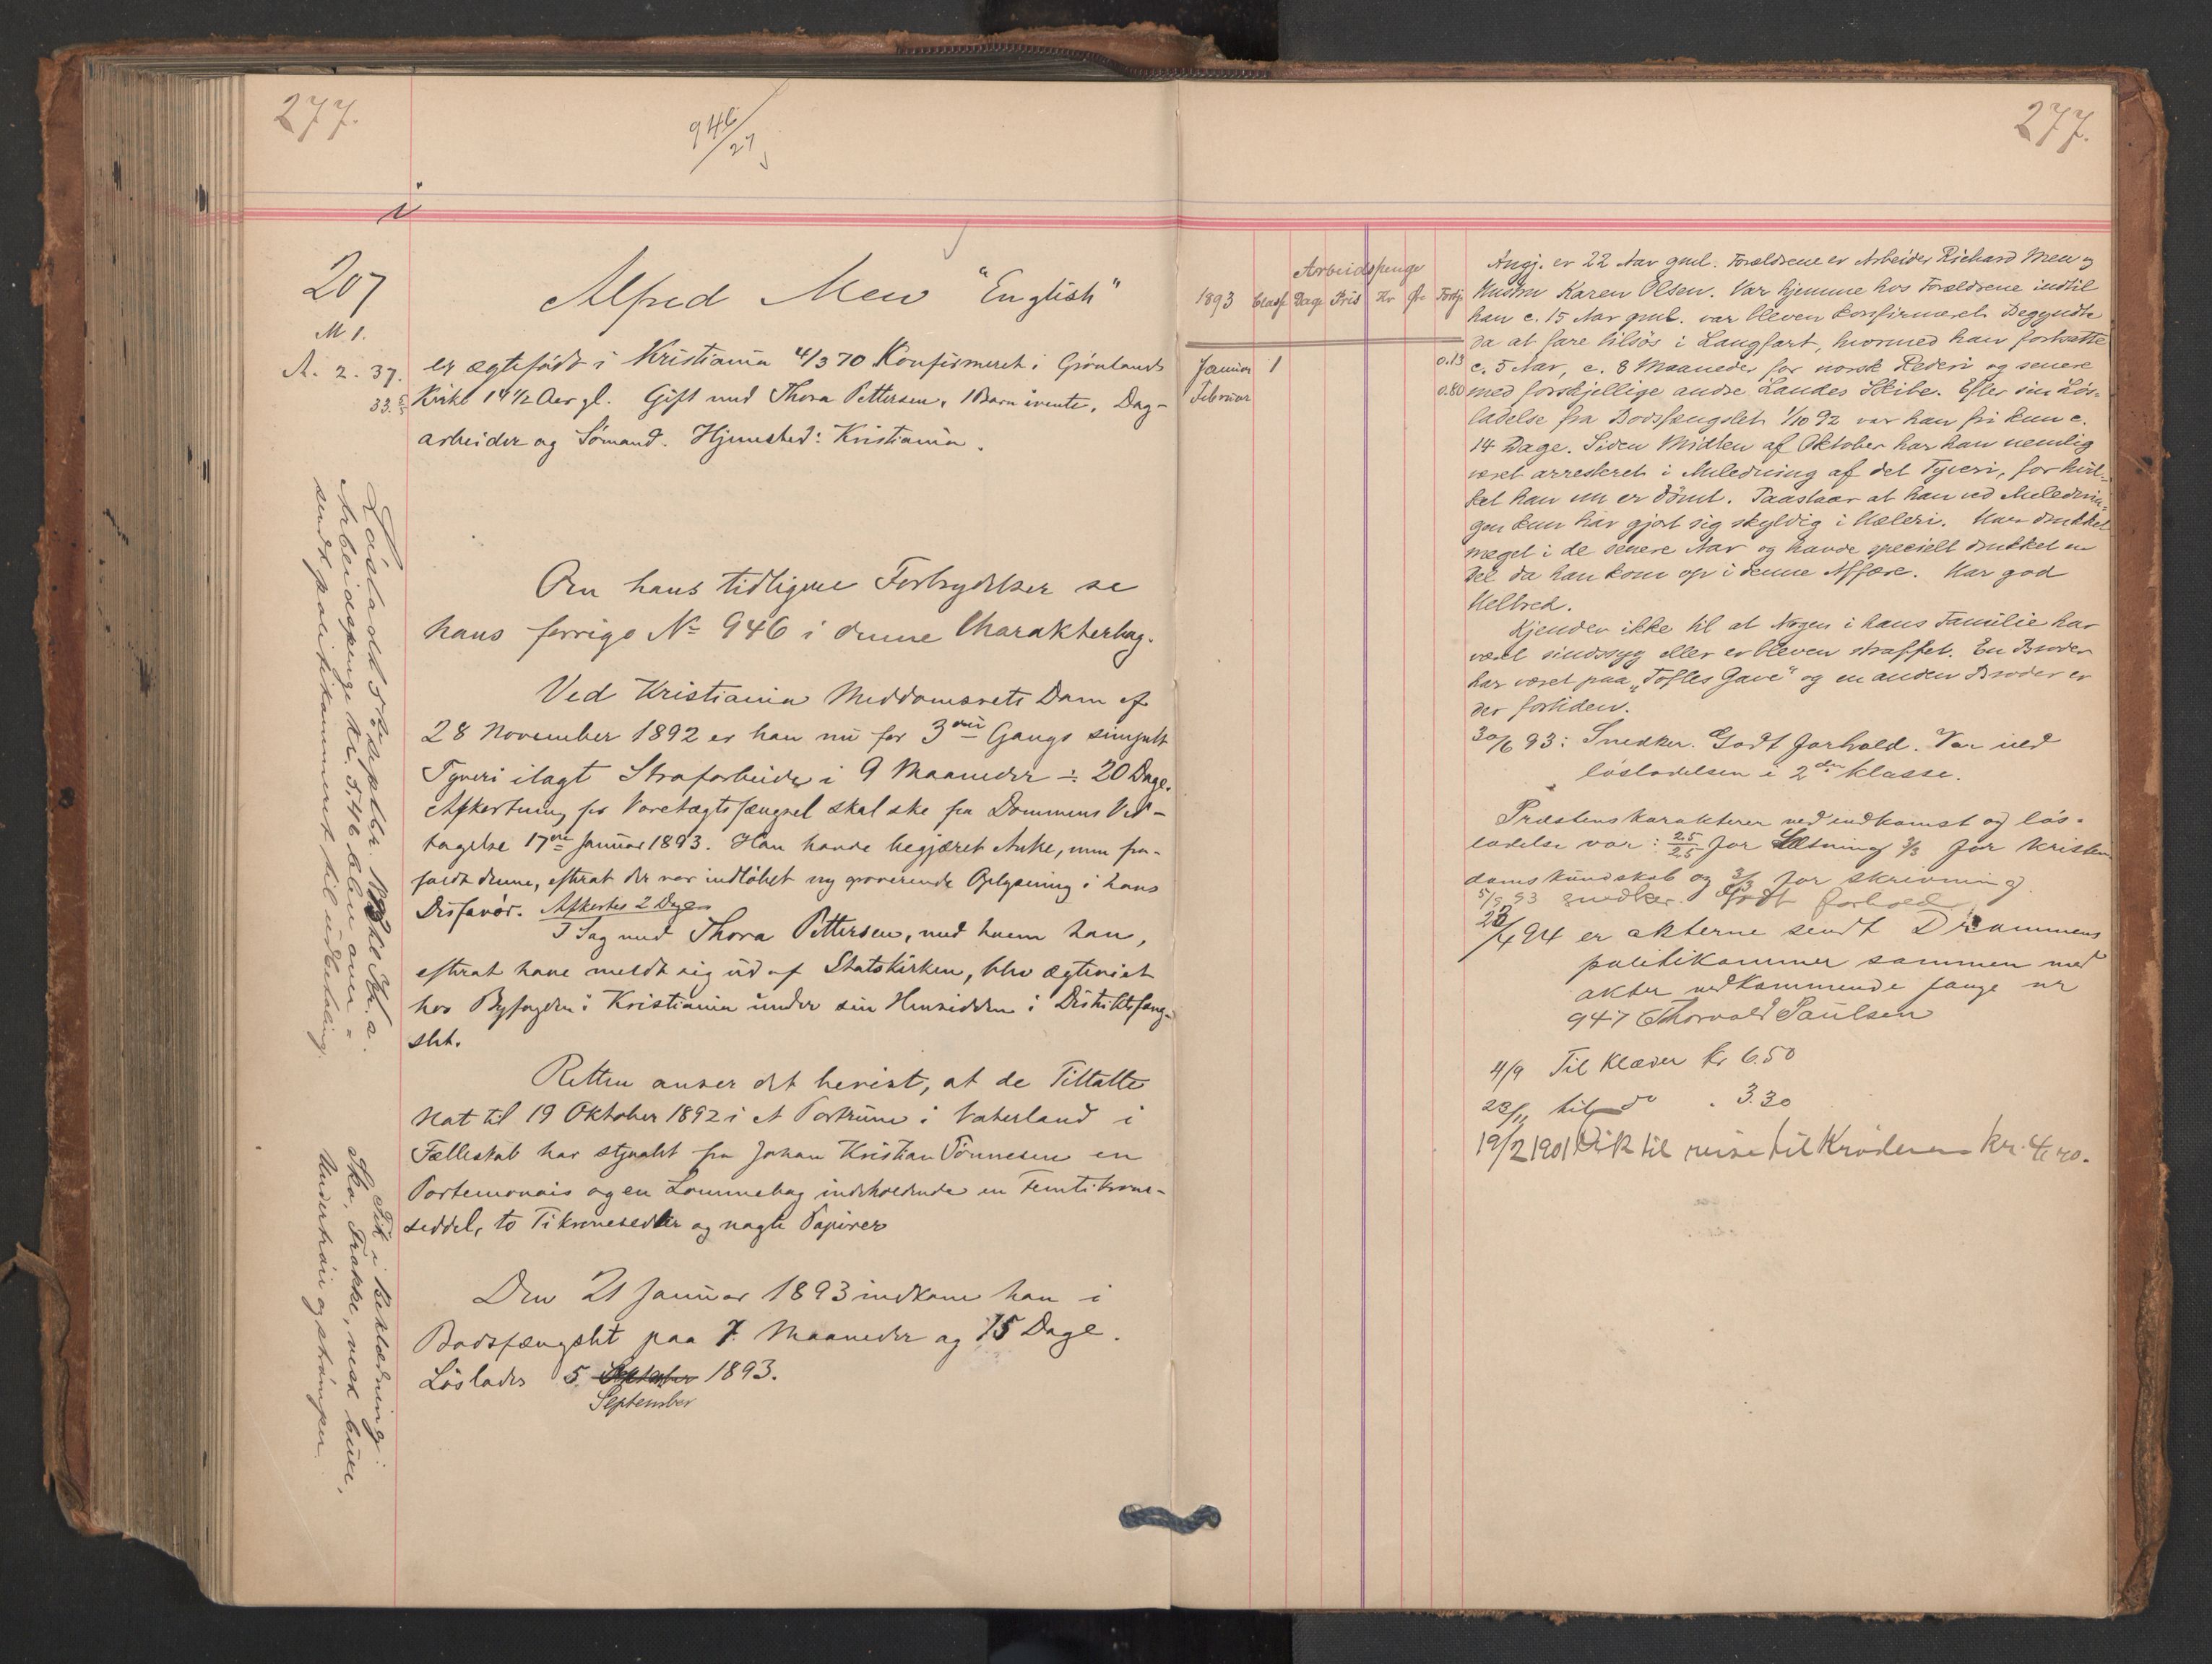 277.
946/27
i
207
M 1.
A. 2. 37.
33.
Alfred Mew "English"
er ægtefødt i Kristiania 4/3 70 Konfirmeret i Grønlands
Kirke 14 1/2 Aar gl. Gift med Thora Pettersen, 1 Barn ivente, Dag-
arbeider og Sømand. Hjemsted: Kristiania.
Om hans tidligere Forbrydelser se
hans forrige No 946 i denne Charakterbog.
Ved Kristiania Meddomsrets Dom af
28 November 1892 er han nu for 3die Gangs simpelt
Tyveri ilagt Strafarbeide i 9 Maaneder ÷ 20 Dage.
Afkortning for Varetægtsfængsel skal ske fra Dommens Ved-
tagelse 17de Januar 1893. Han havde begjæret Anke, men fra-
faldt denne, efterat der var indløbet ny graverende Oplysning i hans
Disfavør. Afkortes 2 Dage
I Sag med Thora Pettersen, med hvem han,
efterat have meldt sig ud af Statskirken, blev ægteviet
hos Byfogden i Kristiania under sin Hensidden i Distriktsfæng-
slet.
Retten anser det bevist, at de Tiltalte
Nat til 19 Oktober 1892 i et Portrum i Vaterland i
Fællesskab har stjaalet fra Johan Kristian Tønnesen en
Portemonais og en Lommebog indeholdende en Femtikrone-
seddel, to Tikronesedler og nogle Papirer
Den 21 Januar 1893 indkom han i
Bodsfængslet paa 7 Maaneder og 15 Dage.
Löslades 5 Oktober 1893.
September
Lösladt 5te septbr. Kl. 2.
Arbeidspenge kr. 5.46 blev over-
sendt politikammeret til udbetaling.
Fik i Beklædning:
Sko, Frakke, vest, buxe,
Undertrøie og strömper.
277.
Arbeidspenge
1893 Classe Dage Pris Kr Øre Fortj.
Januar 1 0.13
Februar 0.80
Angj. er 22 Aar gml. Forældrene er Arbeider Richard Mew og
Hustru Karen Olsen. Var hjemme hos Forældrene indtil
han c. 15 Aar gml. var bleven konfirmeret. Begyndte
da at fare tilsøs i Langfart, hvormed han fortsatte
c. 5 Aar, c. 8 Maaneder for norsk Rederi og senere
med forskjellige andre Landes Skibe. Efter sin Løs-
ladelse fra Bodsfængslet 1/10 92 var han fri kun c.
14 Dage. Siden Midten af Oktober har han nemlig
været arresteret i Anledning af det Tyveri, for hvil-
ket han nu er dømt. Paastaar at han ved Anlednin-
gen kun har gjort sig skyldig i Hæleri. Har drukket
meget i de senere Aar og havde specielt drukket en
Del da han kom op i denne Affære. Har god
Helbred.
Kjender ikke til at Nogen i hans Familie har
været sindssyg eller er bleven straffet. En Broder
har været paa "Toftes Gave" og en anden Broder er
der fortiden.
30/6 93: Snedker. Godt forhold. Var ved
løsladelsen i 2den klasse.
Præstens karakterer ved indkomst og løs-
ladelse var: 2,5/2,5 for Læsning 3/3 for kristen-
doms kundskab og 3/3 for skrivning.
5/9 93 snedker. Godt forhold
28/4 94 er akterne sendt Drammens
politikammer sammen med
akter vedkommende fange nr
947 Thorvald Paulsen
4/9 Til Klæder kr 6.50
23/11 til do . 3.30
19/2 1901 Fik til reise til Krøderen kr. 4.20.